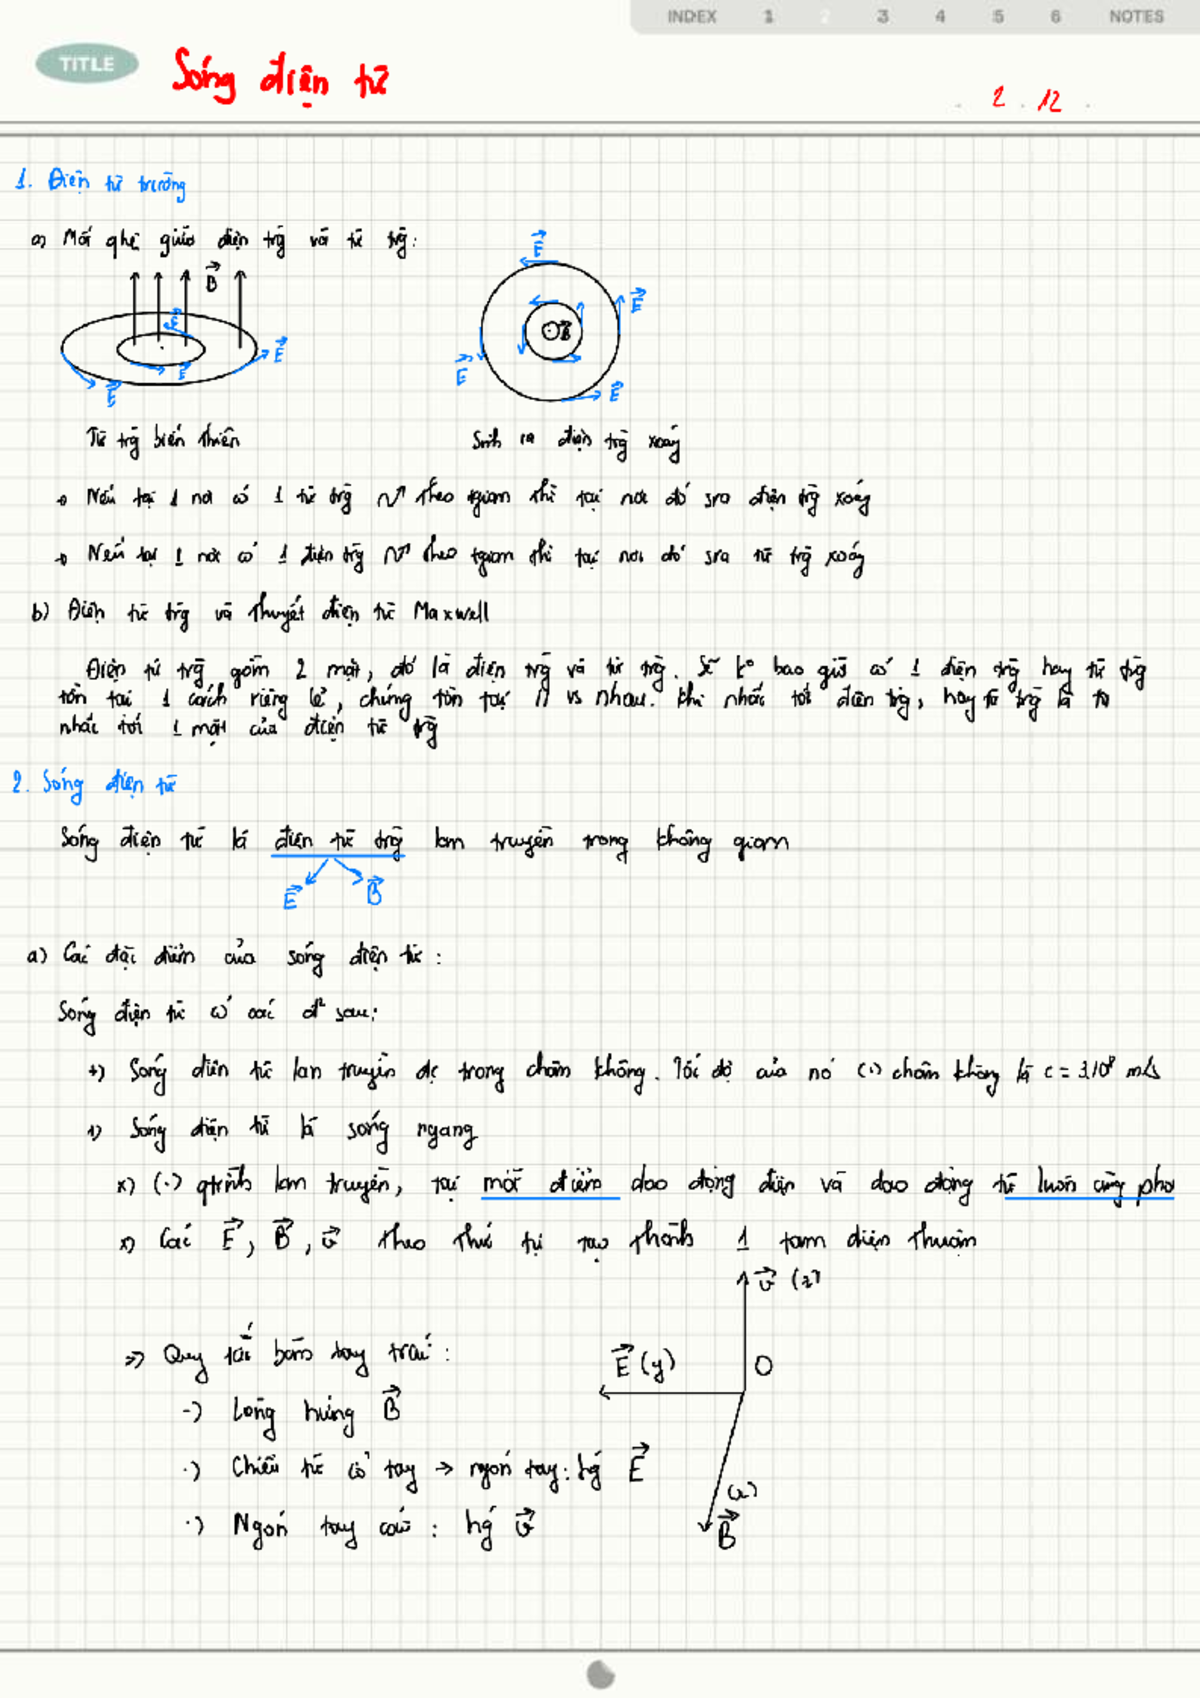 INDEX 1 2 3 4 5 6 NOTES
TITLE Sóng điện từ
2 . 12
1. Điện từ trường
a) Mối qhệ giữa điện trg và từ trg:
B
E
E
E
E
E
E
B
E
E
Từ trg biến thiên
Sinh ra điện trg xoáy
Nếu tại 1 nơi có 1 từ trg theo tgian thì tại nơi đó sra điện trg xoáy
Nếu tại 1 nơi có 1 điện trg theo tgian thì tại nơi đó sra từ trg xoáy
b) Điện từ trg và thuyết điện từ Maxwell
Điện từ trg gồm 2 mặt, đó là điện trg và từ trg. Sẽ ko bao giờ có 1 điện trg hay từ trg
tồn tại 1 cách riêng lẻ, chúng tồn tại // vs nhau. Khi nhắc tới điện trg, hay từ trg là ta
nhắc tới 1 mặt của điện từ trg
2. Sóng điện từ
Sóng điện từ là điện từ trg lan truyền trong không gian
E B
a) Các đặc điểm của sóng điện từ :
Sóng điện từ có các đ² sau:
+) Sóng điện từ lan truyền đc trong chân không. Tốc độ của nó (.) chân không là c = 3.10⁸ m/s
+) Sóng điện từ là sóng ngang
+) (.) qtrình lan truyền, tại mỗi điểm dao động điện và dao động từ luôn cùng pha
+) Các E, B, v theo thứ tự tạo thành 1 tam diện thuận
v (z)
=> Quy tắc bàn tay trái :
E (y)
O
-) Lòng hứng B
-) Chiều từ cổ tay → ngón tay: hg E
(x)
B
-) Ngón tay cái : hg v